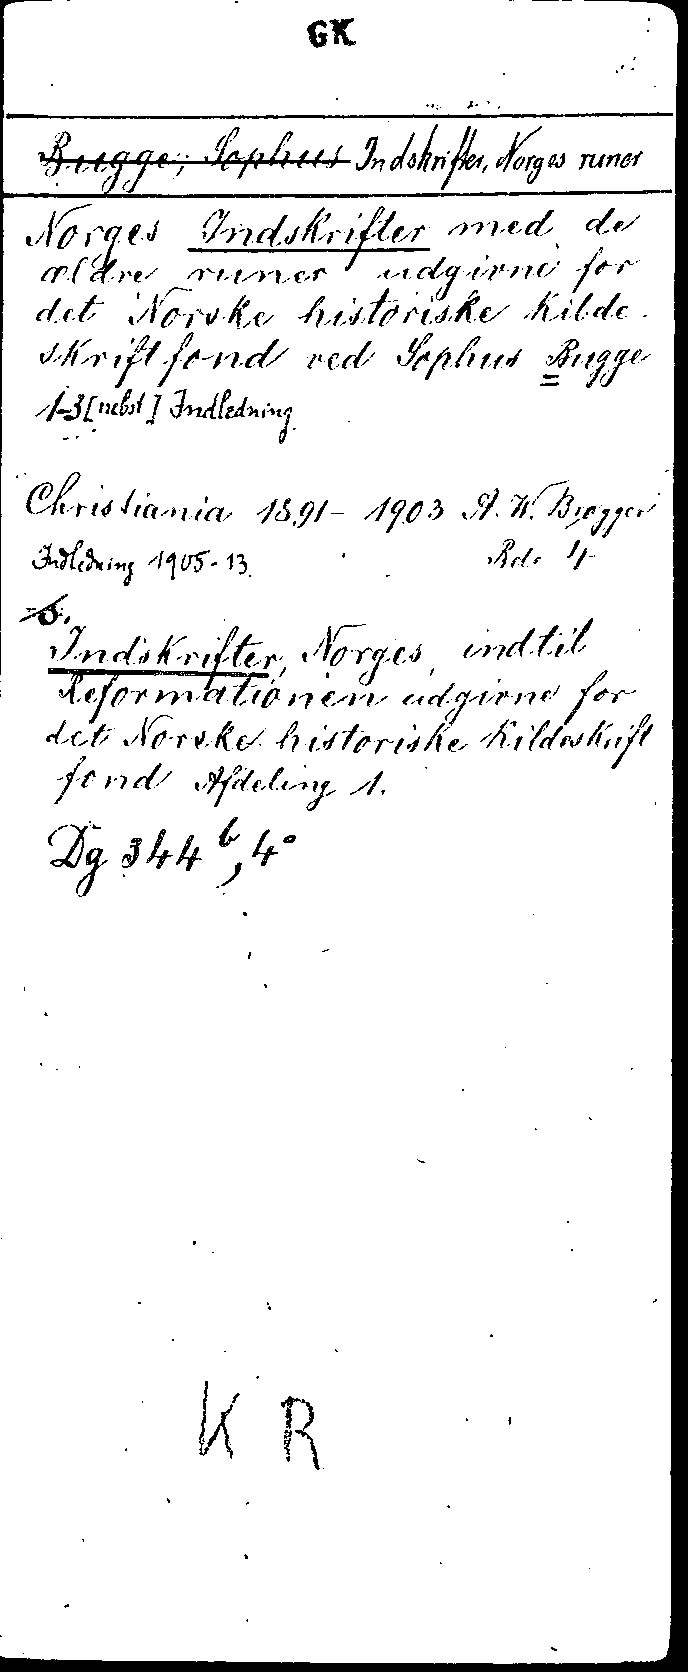 GK
Bugge, Sophus Indskrifter, Norges runer
Norges Indskrifter med de
ældre runer udgivne for
det Norske historiske Kilde
skriftfond ved Sophus Bugge
1-3 [nebst] Indledning
Christiania 1891-1903 A. W. Brøgger
Indledning 1905-13. Bd. 4
S.
Indskrifter, Norges, indtil
Reformationen udgivne for
det Norske historiske Kildeskrift
fond Afdeling 1.
Dg 344 b, 4°
K R